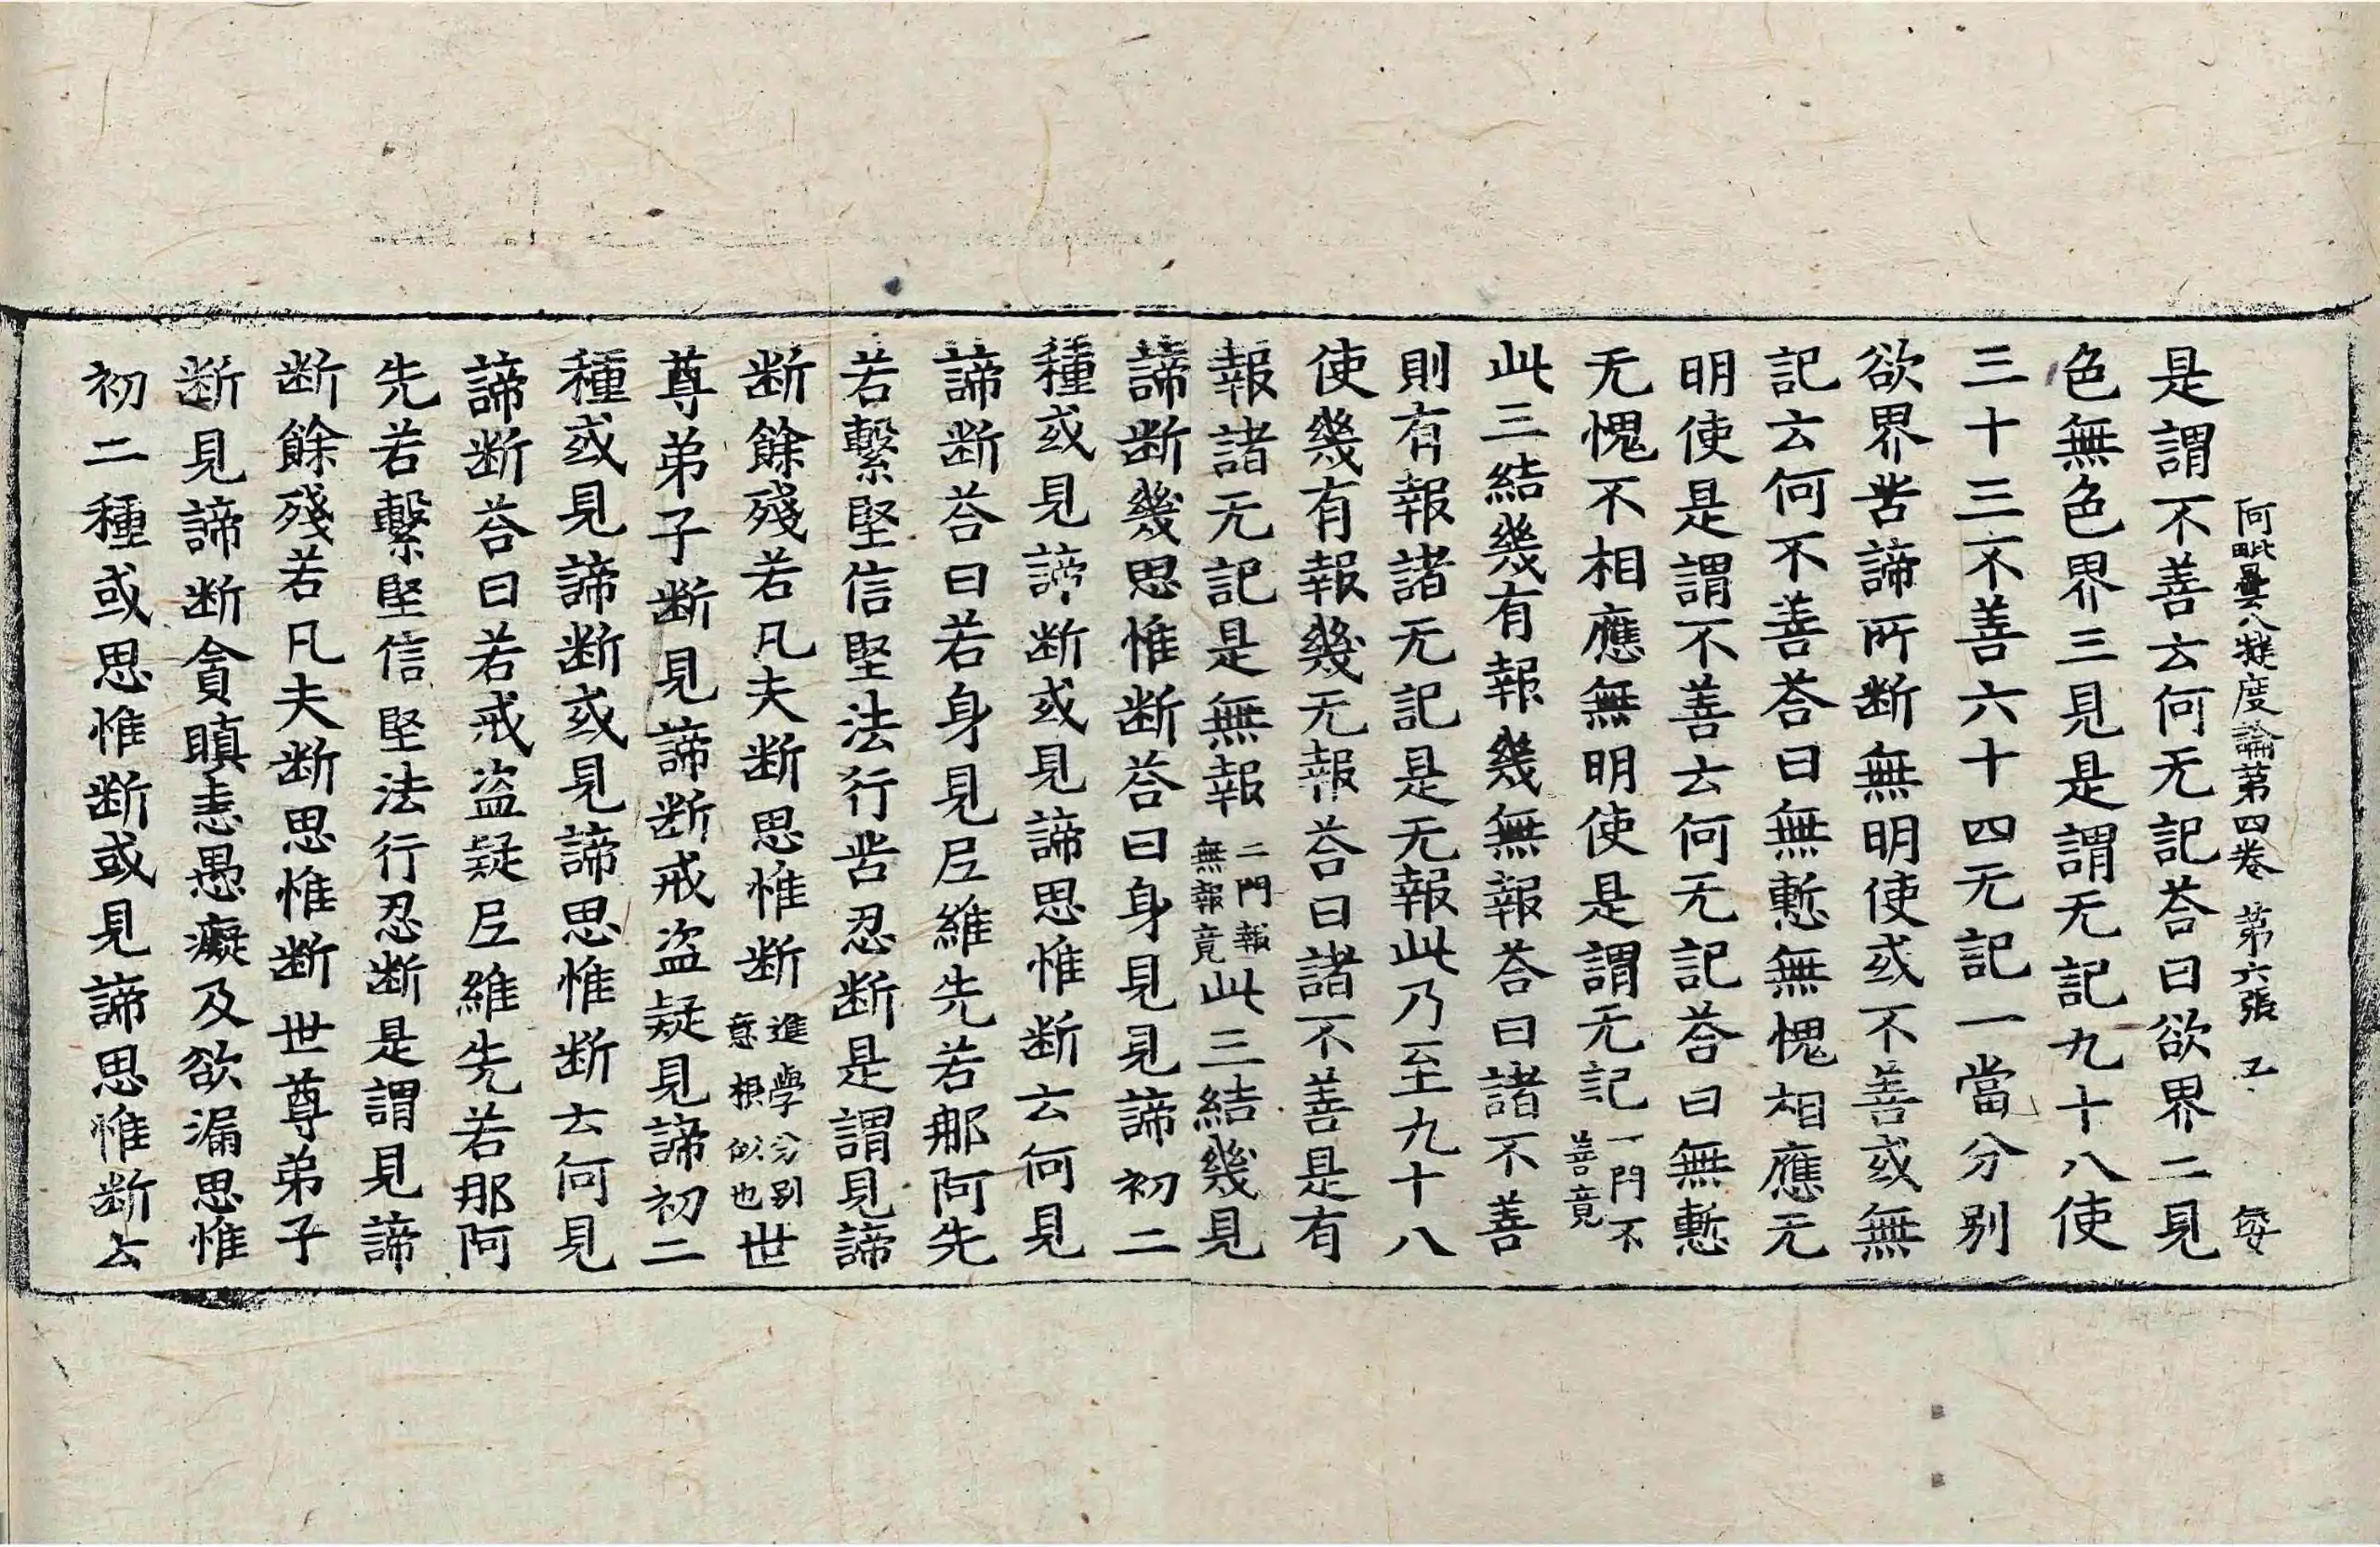 阿毗曇八犍度論第四卷 第六張 又 每
是謂不善云何无記荅曰欲界二見
色無色界三見是謂无記九十八使
三十三不善六十四无記一當分别
欲界苦諦所断無明使或不善或無
記云何不善荅曰無慙無愧相應无
明使是謂不善云何无記荅曰無慙
无愧不相應無明使是謂无記一門不善竟
此三結幾有報幾無報荅曰諸不善
則有報諸无記是无報此乃至九十八
使幾有報幾无報荅曰諸不善是有
報諸无記是無報二門報無報竟此三結幾見
諦断幾思惟断荅曰身見見諦初二
種或見諦断或見諦思惟断云何見
諦断荅曰若身見㞐維先若那阿先
若繫堅信堅法行苦忍断是謂見諦
断餘殘若凡夫断思惟断進學分别意根似也世
尊弟子断見諦断戒盗疑見諦初二
種或見諦断或見諦思惟断云何見
諦断荅曰若戒盗疑㞐維先若那阿
先若繫堅信堅法行忍断是謂見諦
断餘殘若凡夫断思惟断世尊弟子
断見諦断貪瞋恚愚癡及欲漏思惟
初二種或思惟断或見諦思惟断云